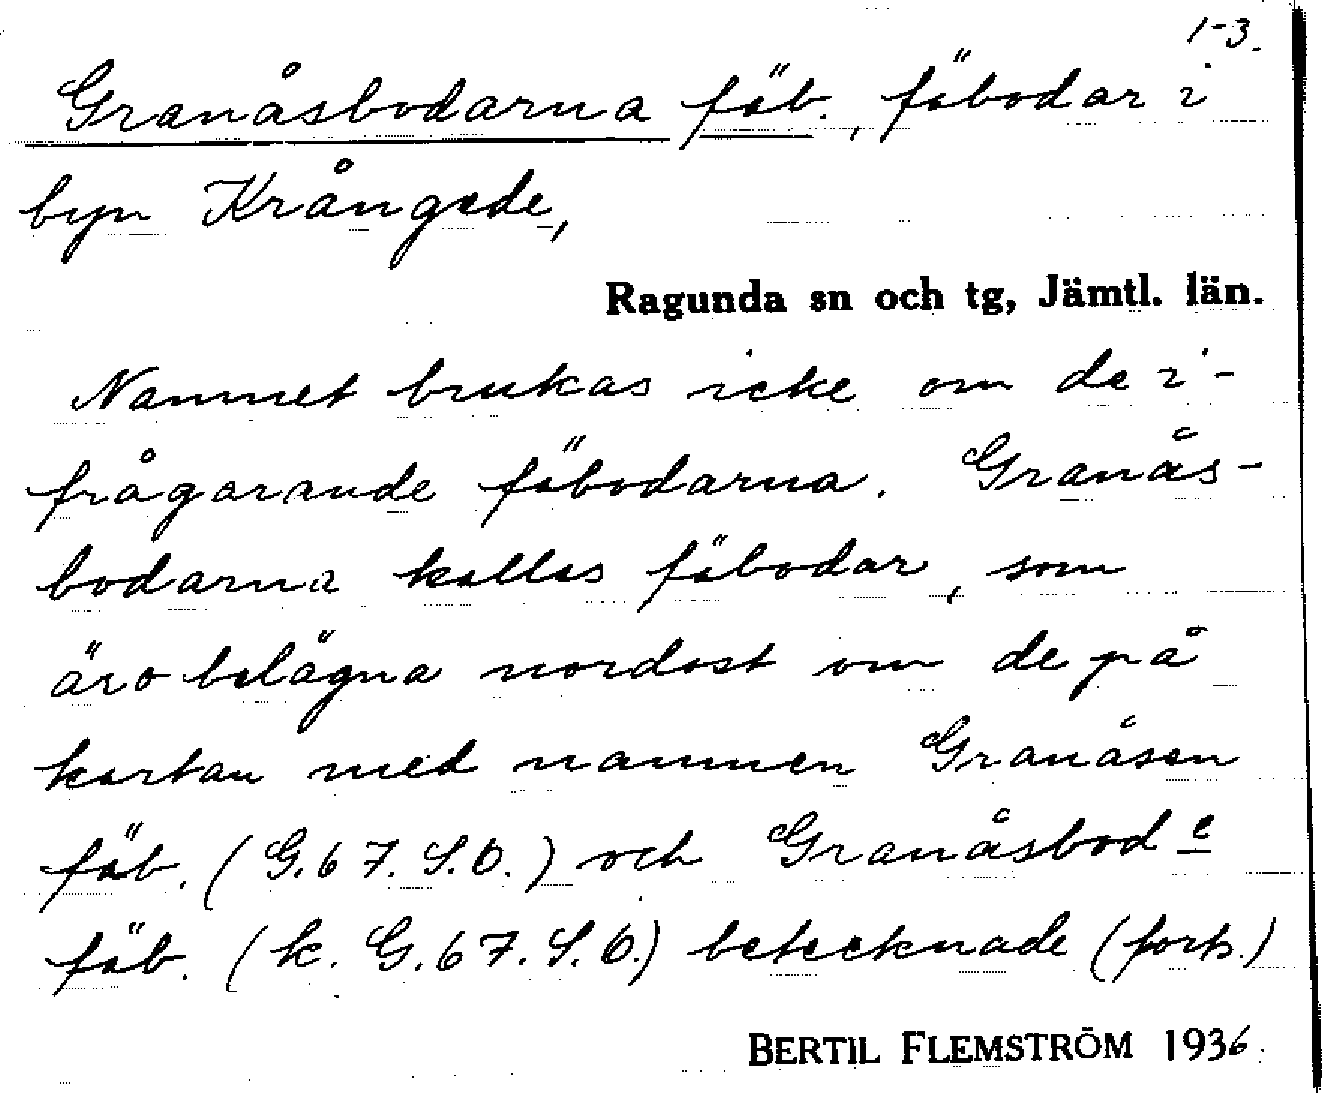 1-3.
Granåsbodarna fäb., fäbodar i
byn Krångede,
Ragunda sn och tg, Jämtl. län.
Namnet brukas icke om de i-
frågarande fäbodarna. Granås-
bodarna kallas fäbodar, som
äro belägna nordost om de på
kartan med namnen Granåsen
fäb. (G.67.S.O.) och Granåsbod e
fäb. (k. G.67.S.O.) betecknade (forts.)
BERTIL FLEMSTRÖM 1936.